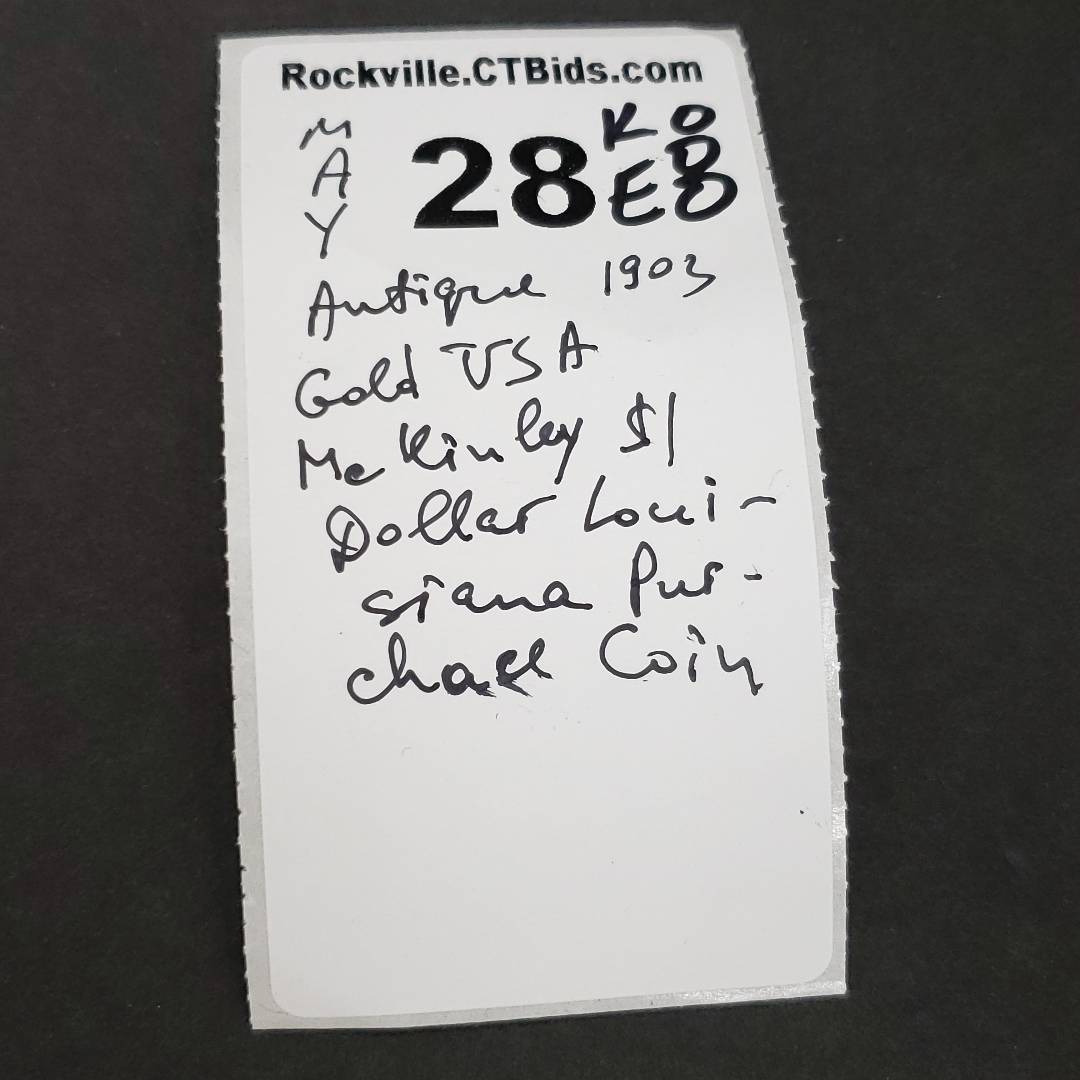 Rockville.CTBids.com
MAY
28
KO
EDO
Antique 1903
Gold USA
McKinley $1
Dollar Loui-
siana Pur-
chase Coin